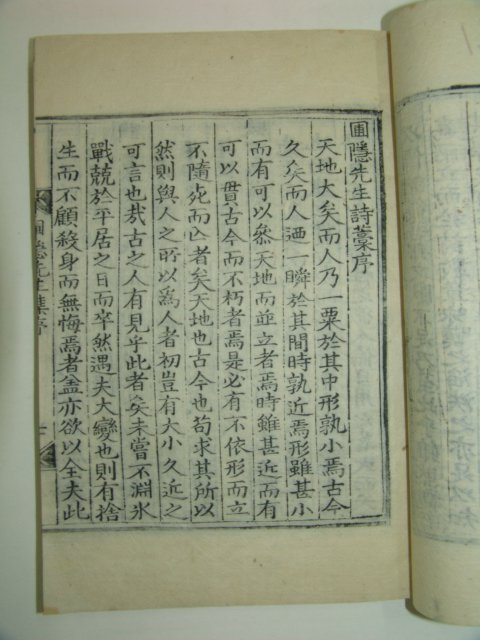 圃隱先生詩藁序
天地大矣而人乃一粟於其中形孰小焉古今
久矣而人迺一瞬於其間時孰近焉形雖甚小
而有可以叅天地而並立者焉時雖甚近而有
可以貫古今而不朽者焉是必有不依形而立
不隨死而亡者矣天地也古今也苟求其所以
然則與人之所以爲人者初豈有大小久近之
可言也㢤古之人有見乎此者矣未嘗不淵氷
戰兢於平居之日而卒然遇夫大變也則有捨
生而不顧殺身而無悔焉者盖亦欲以全夫此
圃隱先生集序